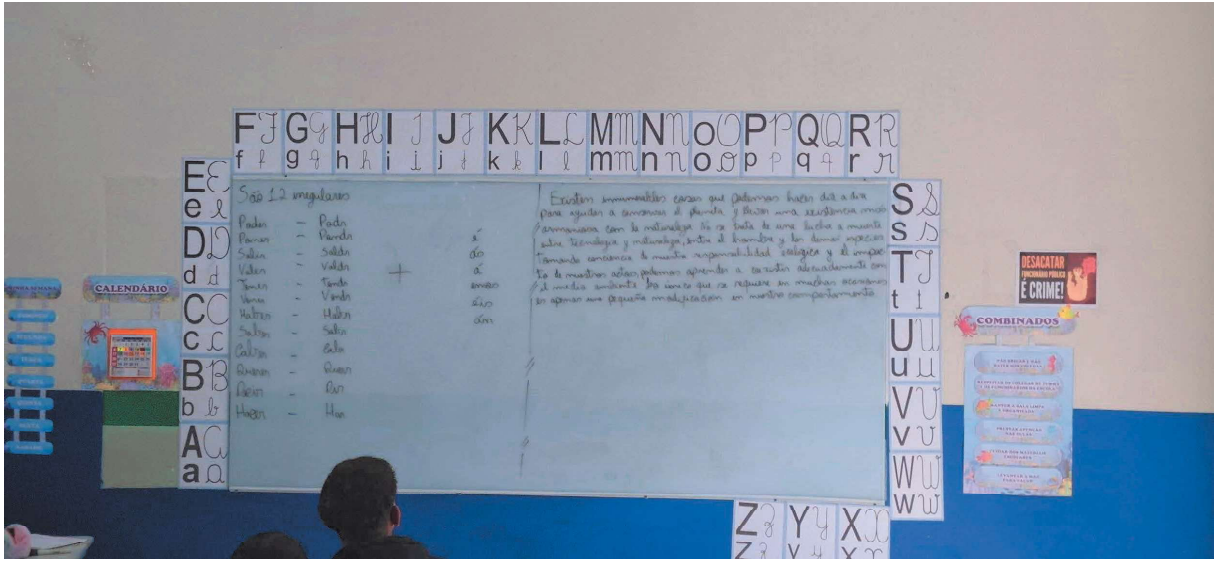 F F G G H H I I J J K K L L M M N N O O P P Q Q R R
f f g g h h i i j j k k l l m m n n o o p p q q r r
E E
e e
D D
d d
C C
c c
B B
b b
A A
a a
São 12 irregulares
Poder - Podr
Poner - Pondr
Salir - Saldr
Valer - Valdr
Tener - Tendr
Venir - Vendr
Haber - Habr
Saber - Sabr
Caber - Cabr
Querer - Querr
Decir - Dir
Hacer - Har
+
é
ás
á
emos
éis
án
Existen innumerables cosas que podemos hacer día a día
para ayudar a conservar el planeta y llevar una existencia más
armoniosa con la naturaleza no se trata de una lucha a muerte
entre tecnología y naturaleza, entre el hombre y las demas especies
Tomando conciencia de nuestra responsabilidad ecológica y el impac
to de nuestros actos podemos aprender a coexistir adecuadamente con
el medio ambiente lo único que se requiere en muchas ocasiones
es apenas una pequeña modificación en nuestro comportamiento
S S
s s
T T
t t
U U
u u
V V
v v
W W
w w
Z Z Y Y X X
CALENDÁRIO
DESACATAR
FUNCIONÁRIO PÚBLICO
É CRIME!
COMBINADOS